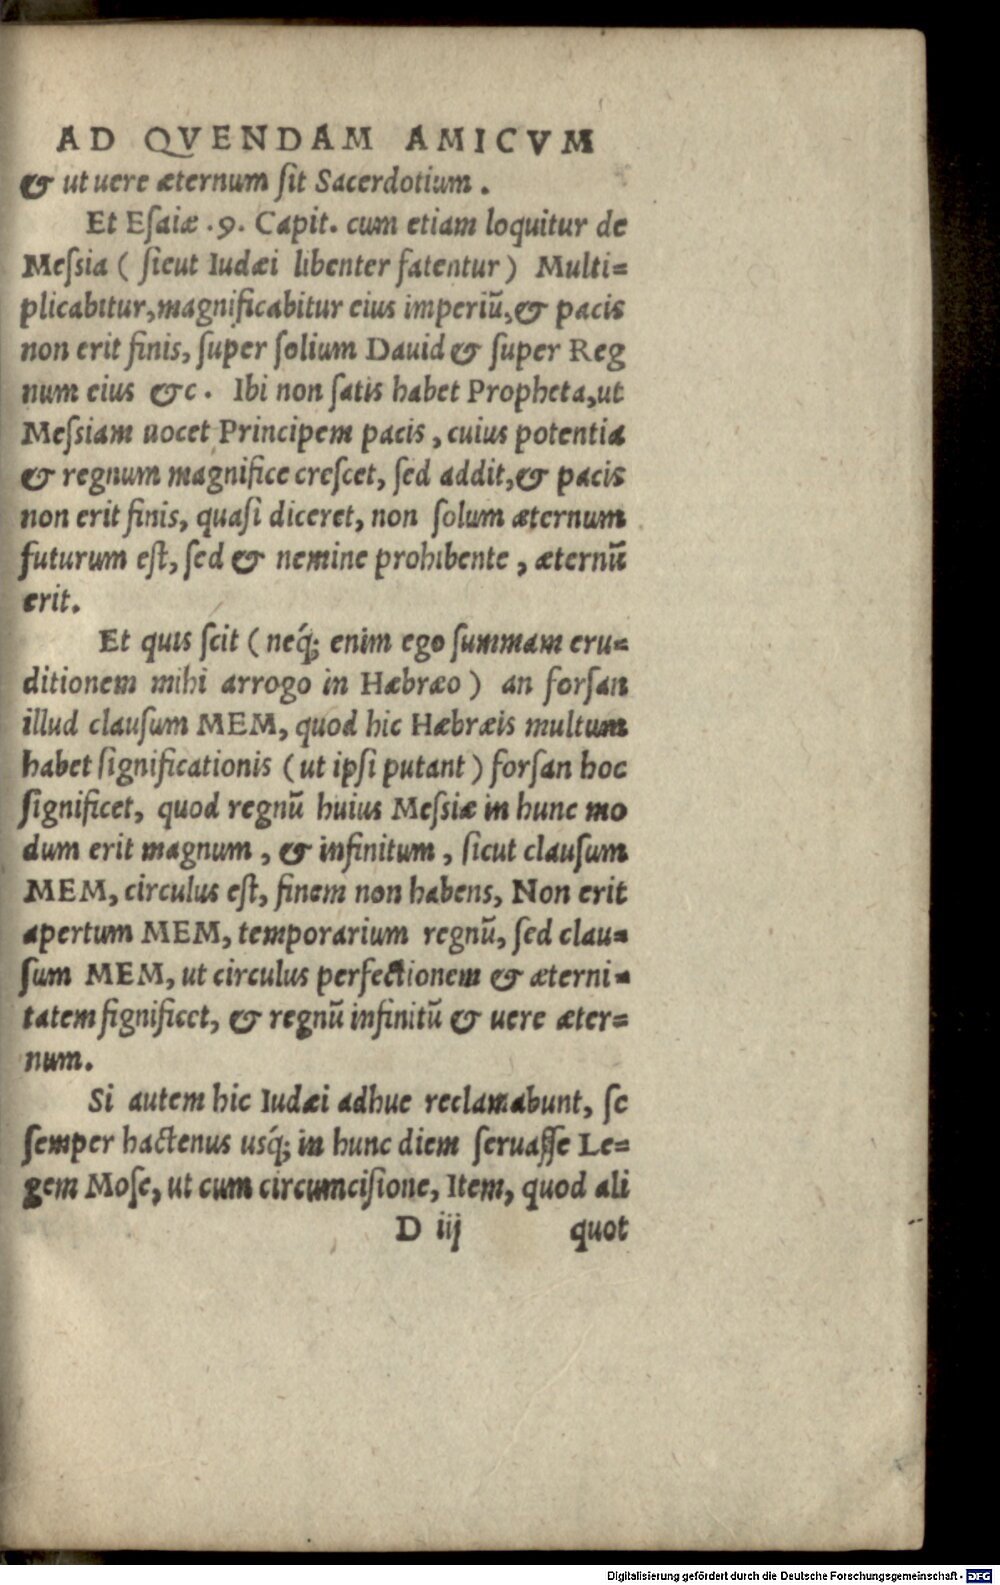 AD QVENDAM AMICVM
& ut uere æternum ſit Sacerdotium .
Et Eſaiæ .9. Capit. cum etiam loquitur de
Meſsia ( ſicut Iudæi libenter fatentur ) Multi=
plicabitur, magnificabitur eius imperiũ, & pacis
non erit finis, ſuper ſolium Dauid & ſuper Reg
num eius &c . Ibi non ſatis habet Propheta, ut
Meſsiam uocet Principem pacis , cuius potentia
& regnum magnifice creſcet, ſed addit, & pacis
non erit finis, quaſi diceret, non ſolum æternum
futurum eſt, ſed & nemine prohibente , æternũ
erit.
Et quis ſcit ( neq́; enim ego ſummam eru=
ditionem mihi arrogo in Hæbræo ) an forſan
illud clauſum MEM, quod hic Hæbræis multum
habet ſignificationis ( ut ipſi putant ) forſan hoc
ſignificet, quod regnũ huius Meſsiæ in hunc mo
dum erit magnum , & infinitum , ſicut clauſum
MEM, circulus eſt, finem non habens, Non erit
apertum MEM, temporarium regnũ, ſed clau=
ſum MEM, ut circulus perfectionem & æterni=
tatem ſignificet, & regnũ infinitũ & uere æter=
num.
Si autem hic Iudæi adhuc reclamabunt, ſe
ſemper hactenus uſq́; in hunc diem ſeruaſſe Le=
gem Moſe, ut cum circumciſione, Item, quod ali
D iij quot
Digitalisierung gefördert durch die Deutsche Forschungsgemeinschaft - DFG